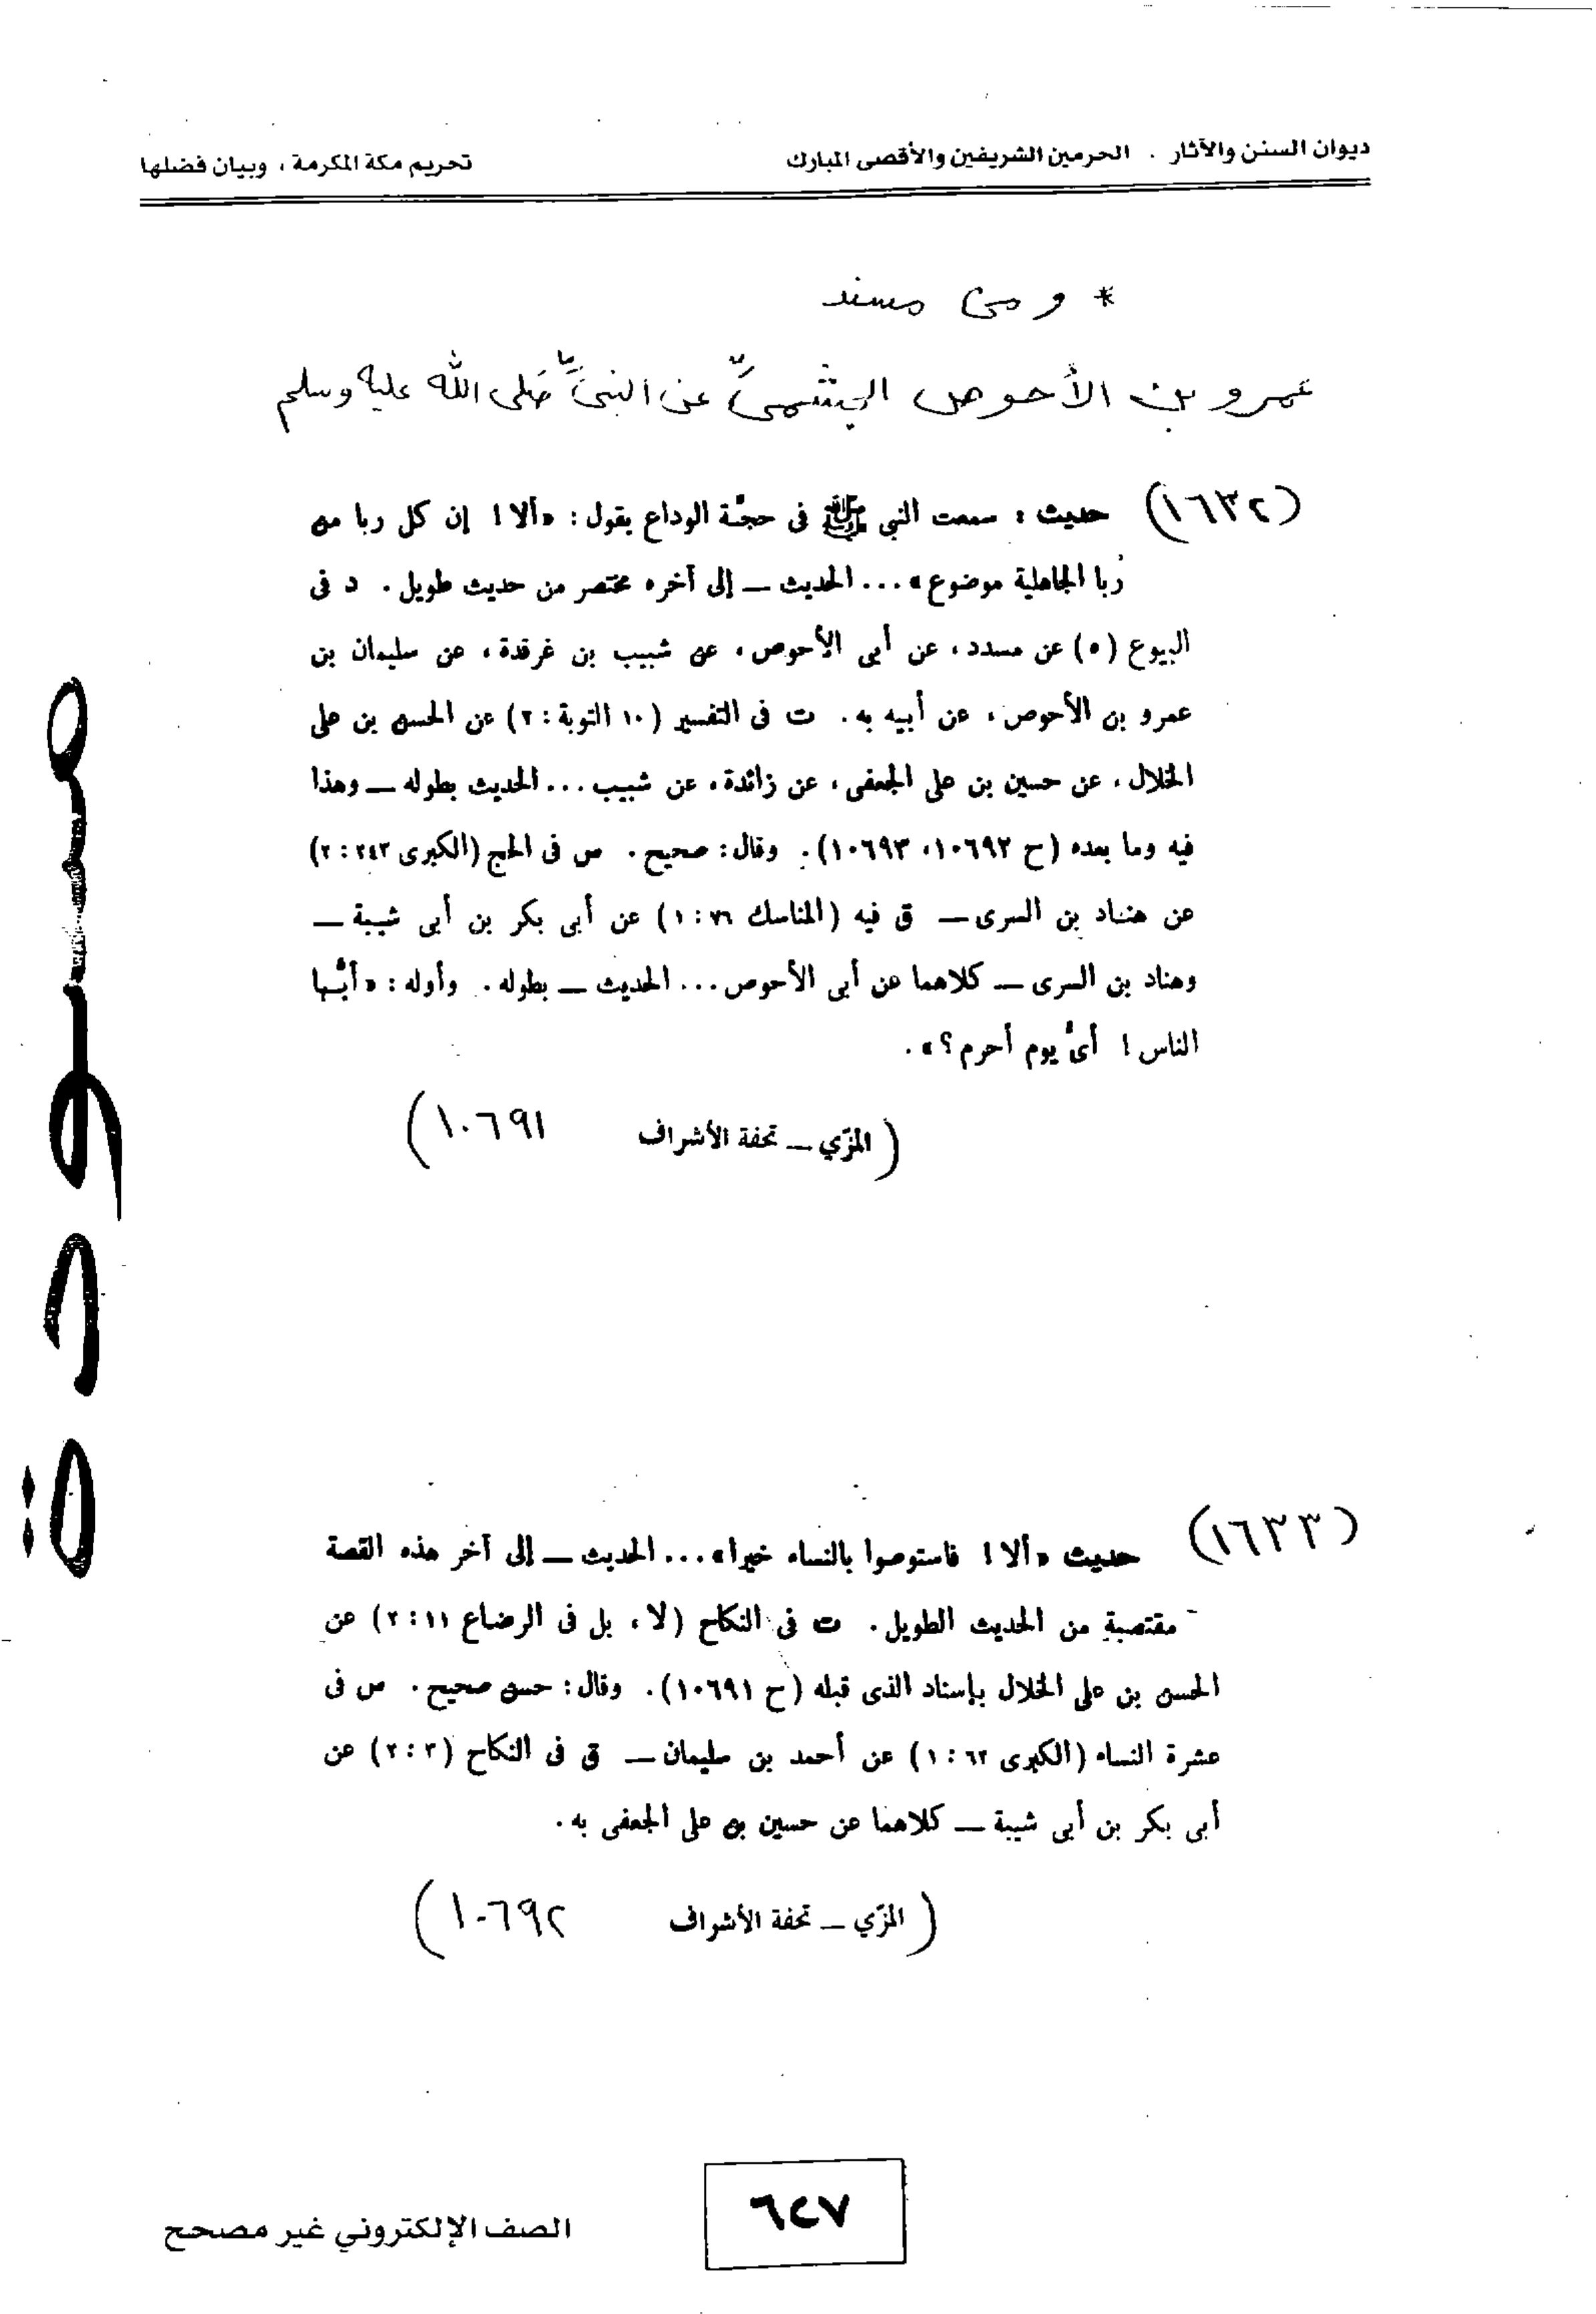 ديوان السنن والآثار . الحرمين الشريفين والأقصى المبارك
تحريم مكة المكرمة ، وبيان فضلها
* ومن مسند
عمرو بن الأحوص الجشميّ عن النبيّ صَلى الله عليه وسلم
(١٦٣٢) حديث : سمعت النبي ﷺ فى حجّة الوداع يقول : «ألا ! إن كل ربا من
ربا الجاهلية موضوع» ... الحديث — إلى آخره مختصر من حديث طويل . د فى
البيوع (٥) عن مسدد، عن أبى الأحوص، عن شبيب بن غرقدة، عن سليمان بن
عمرو بن الأحوص، عن أبيه به . ت فى التفسير (١٠ التوبة : ٢) عن الحسن بن على
الخلال، عن حسين بن على الجعفى، عن زائدة، عن شبيب ... الحديث بطوله — وهذا
فيه وما بعده (ح ١٠٦٩٢، ١٠٦٩٣) . وقال : صحيح . س فى الحج (الكبرى ٢٤٣ : ٢)
عن هنّاد بن السرى — ق فيه (المناسك ٧٦ : ١) عن أبى بكر بن أبى شيبة —
وهناد بن السرى — كلاهما عن أبى الأحوص ... الحديث — بطوله . وأوله : «أيّها
الناس ! أىّ يوم أحرم؟» .
(المزّي — تحفة الأشراف ١٠٦٩١)
(١٦٣٣) حديث «ألا ! فاستوصوا بالنساء خيرا» ... الحديث — إلى آخر هذه القصة
مقتصبة من الحديث الطويل . ت فى النكاح (لا، بل فى الرضاع ١١ : ٢) عن
الحسن بن على الخلال بإسناد الذى قبله (ح ١٠٦٩١) . وقال : حسن صحيح . س فى
عشرة النساء (الكبرى ٦٢ : ١) عن أحمد بن سليمان — ق فى النكاح (٣ : ٢) عن
أبى بكر بن أبى شيبة — كلاهما عن حسين بن على الجعفى به .
(المزّي — تحفة الأشراف ١٠٦٩٢)
مسودة
٦٢٧
الصف الإلكتروني غير مصحح